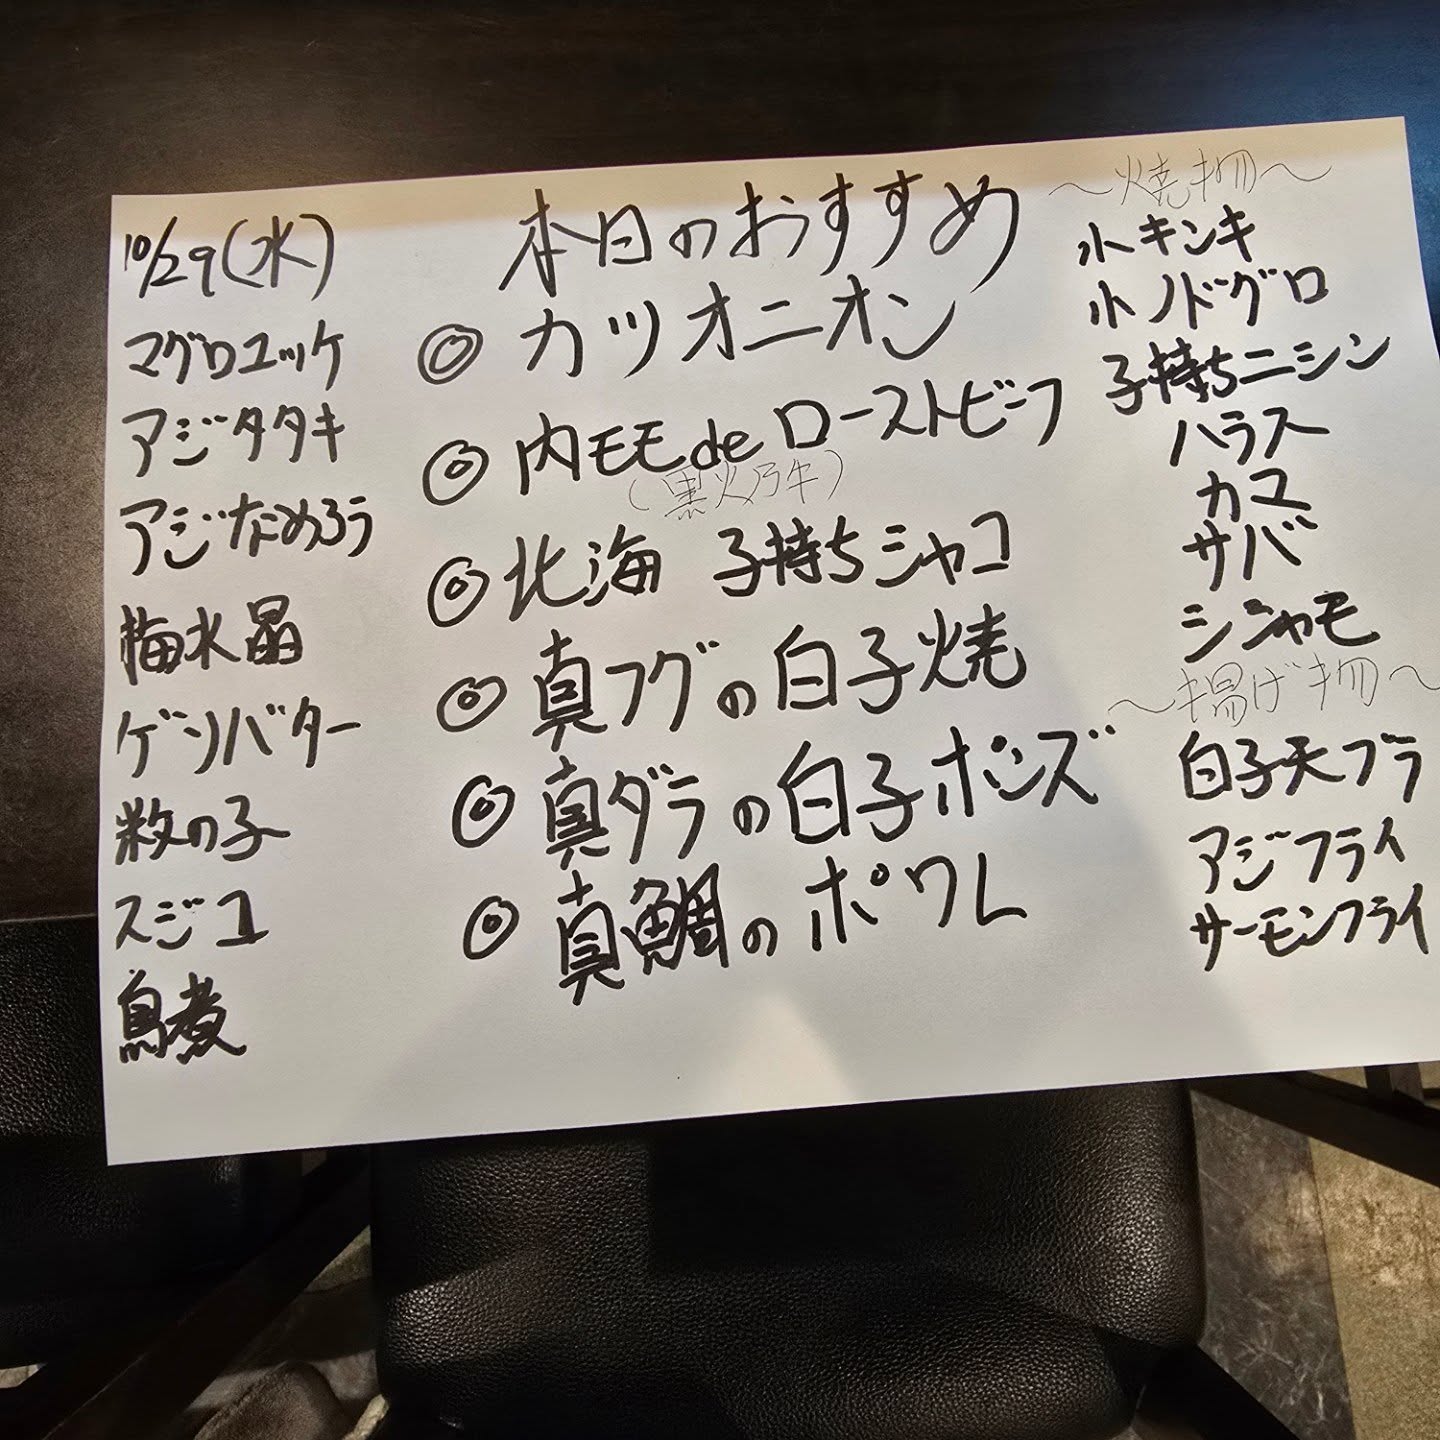 10/29(水)
マグロユッケ
アジタタキ
アジなめろう
梅水晶
ゲソバター
数の子
スジコ
鳥煮
本日のおすすめ
◎ カツオニオン
◎ 内モモdeローストビーフ
(黒火乃牛)
◎ 北海 子持ちシャコ
◎ 真フグの白子焼
◎ 真ダラの白子ポンズ
◎ 真鯛のポワレ
～焼物～
小キンキ
小ノドグロ
子持ちニシン
ハラス
カマ
サバ
シシャモ
～揚げ物～
白子天プラ
アジフライ
サーモンフライ